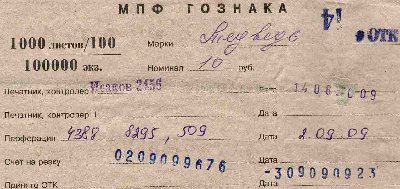 МПФ ГОЗНАКА
14
1000 листов/100 Марки Медведь ОТК
100000 экз. Номинал 10 руб.
Печатник, контролер Исаков 2456 Дата 1406 09
Печатник, контролер Дата
Перфорация 4388 8295, 509 Дата 2.09 09
Счет на резку 0209099676 Дата
-309090923
Принято ОТК Дата